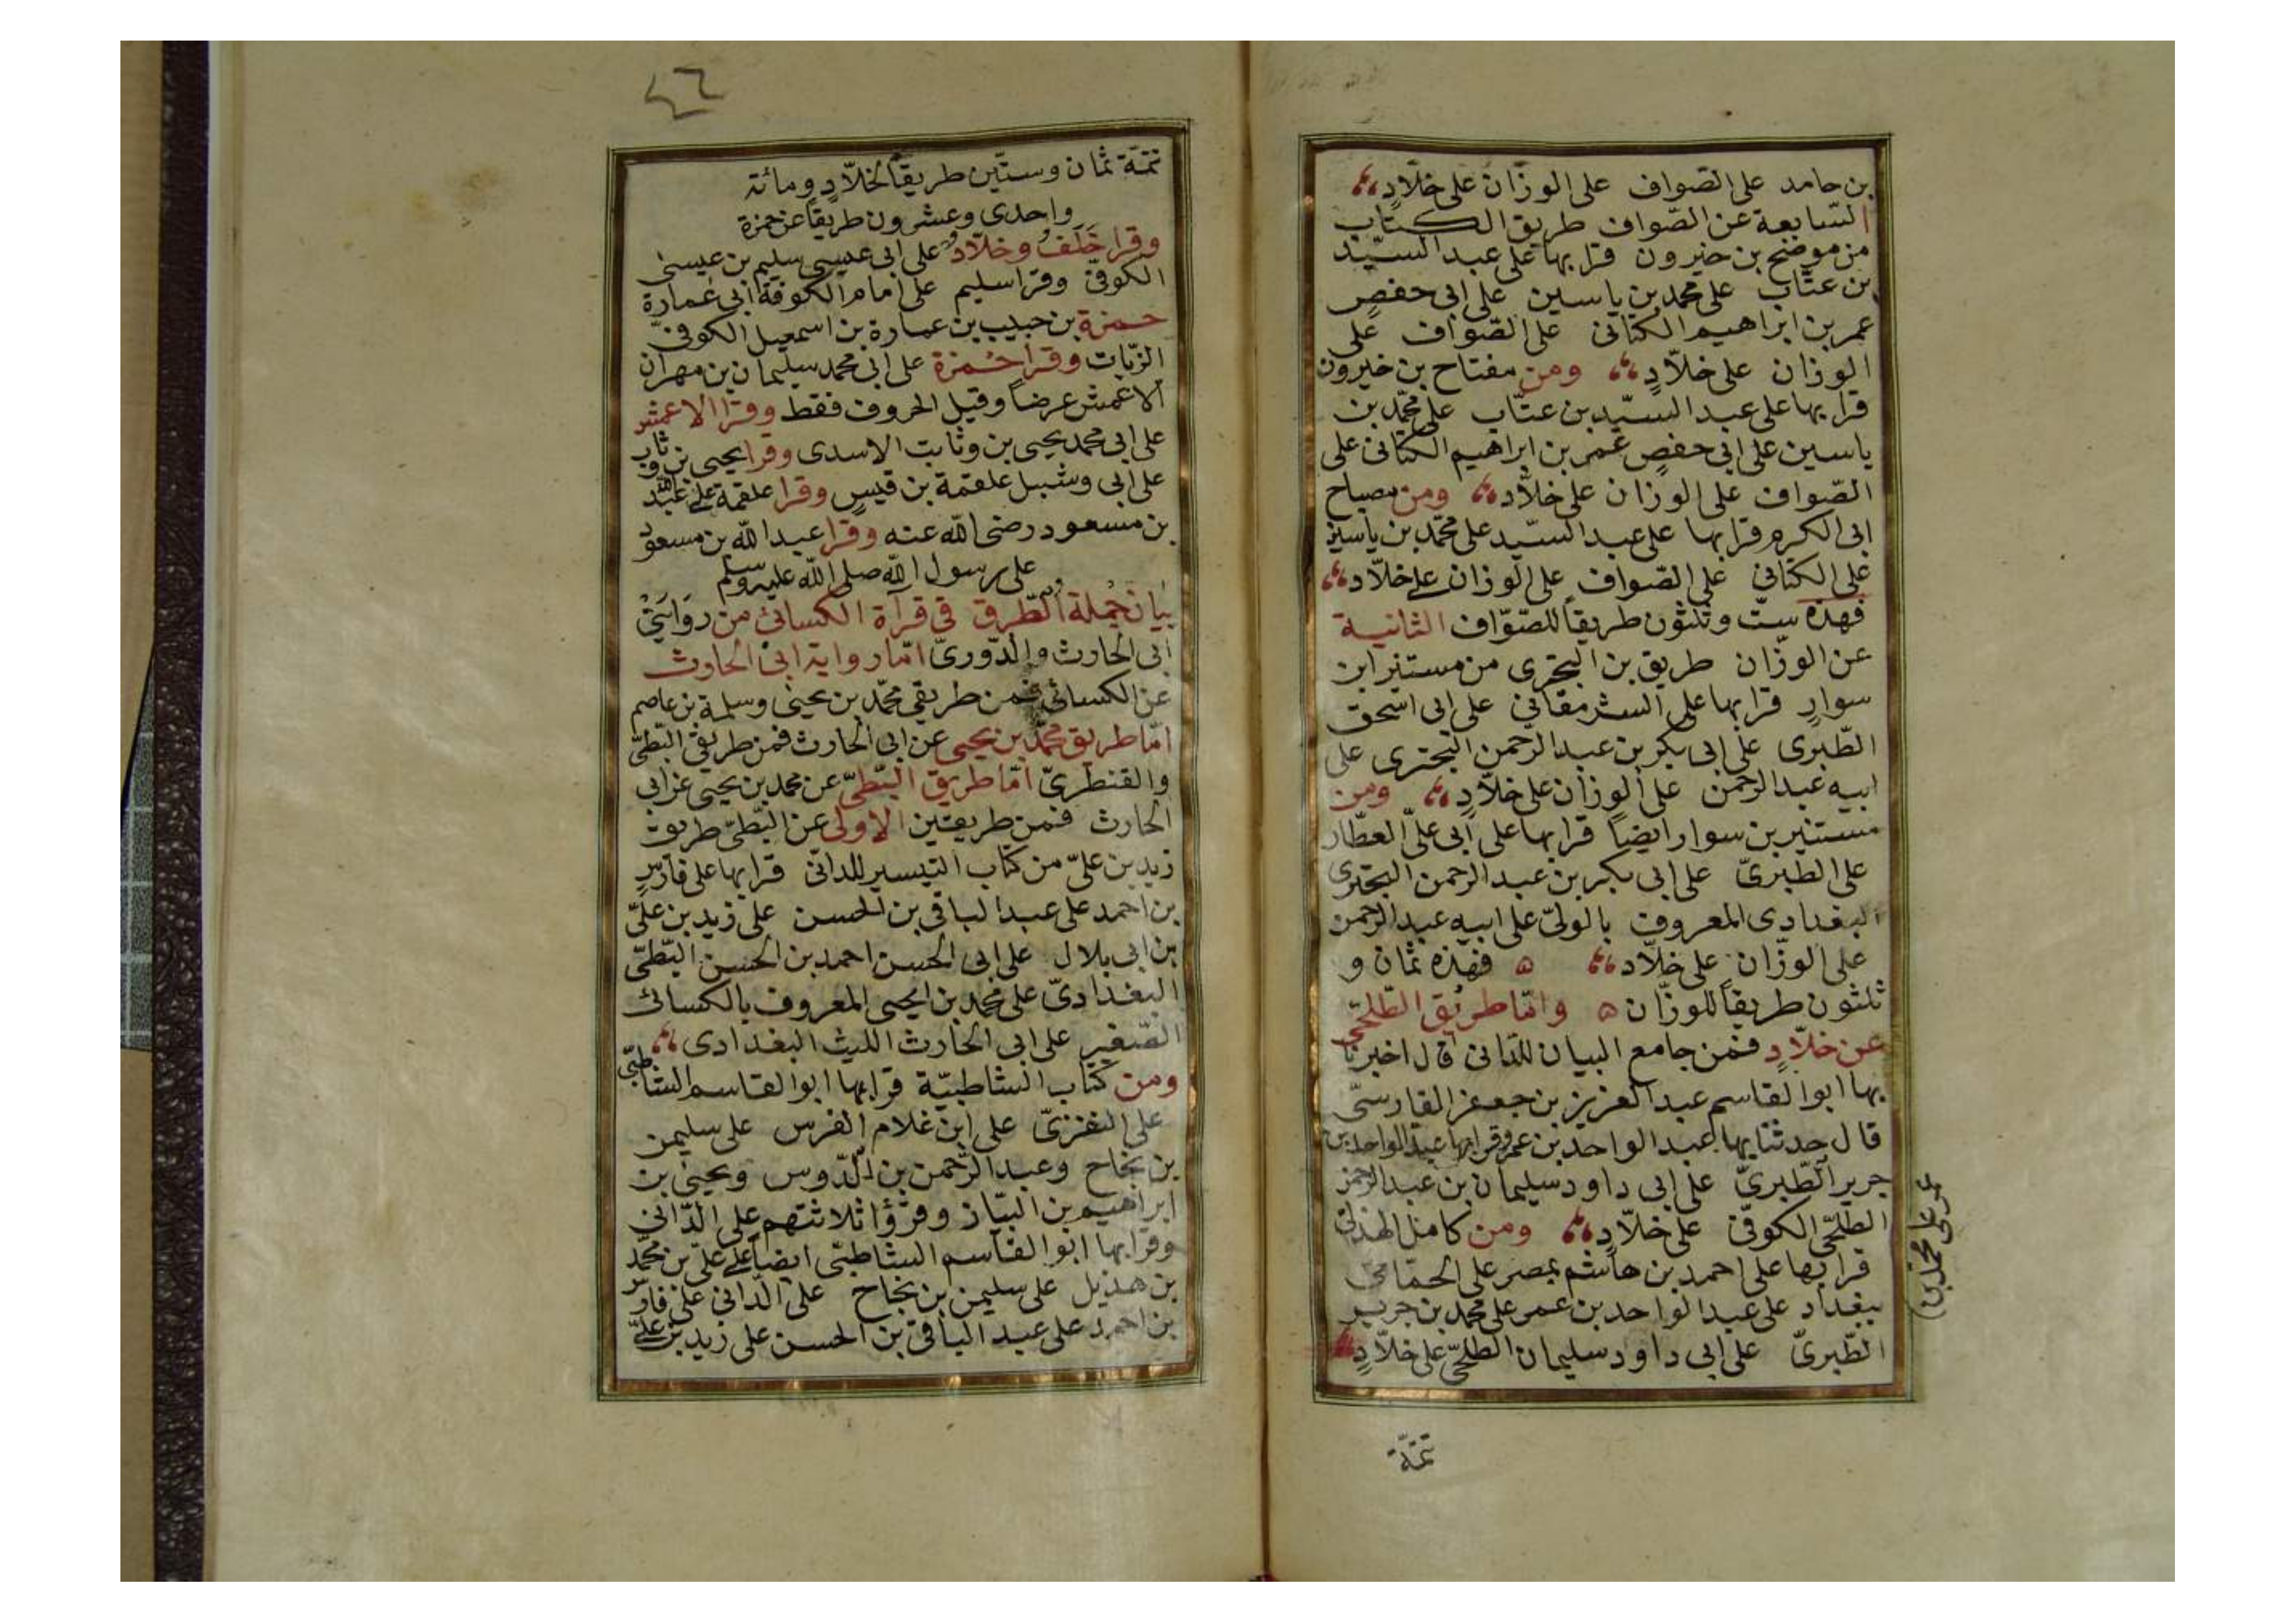 بن حامد على الصّواف على الوزّان على خلّادٍ
السّابعة عن الصّواف طريق الكتاب
من موضح بن خيرون قرا بها على عبد السيّد
بن عتّاب على محمد بن ياسين على ابى حفصٍ
عمر بن ابراهيم الكتانى على الصّواف على
الوزان على خلّادٍ ومن مفتاح بن خيرون
قرا بها على عبد السيّد بن عتّاب على محمّد بن
ياسين على ابى حفصٍ عمر بن ابراهيم الكتانى على
الصّواف على الوزان على خلّاد ومن مصباح
ابى الكرم قرا بها على عبد السيّد على محمّد بن ياسين
على الكتانى على الصّواف على الوزان على خلّاد
فهذه ستّ وثلثون طريقاً للصّواف الثانية
عن الوزّان طريق بن البخترى من مستنير ابن
سوارٍ قرا بها على الشرمقانى على ابى اسحق
الطّبرى على ابى بكر بن عبد الرحمن البخترى على
ابيه عبد الرحمن على الوزان على خلّادٍ ومن
مستنير بن سوار ايضاً قرا بها على ابى علىّ العطّار
على الطبرىّ على ابى بكر بن عبد الرحمن البخترى
البغدادى المعروف بالولىّ على ابيه عبد الرحمن
على الوزّان على خلّاد ه فهذه ثمان و
ثلثون طريقاً للوزّان ه وامّا طريق الطّلحى
عن خلّادٍ فمن جامع البيان للدانى قال اخبرنا
بها ابو القاسم عبد العزيز بن جعفر الفارسىّ
قال حدثنا بها عبد الواحد بن عمر وقرا بها عبد الواحد بن
جرير الطّبرىّ على ابى داود سليمان بن عبد الرحمن
الطلحّى الكوفىّ على خلّادٍ ومن كامل الهذلى
قرا بها على احمد بن هاشم بمصر على الحمّامىّ
ببغداد على عبد الواحد بن عمر على محمد بن جرير
الطّبرىّ على ابى داود سليمان الطلحىّ على خلّادٍ
عمر على محمد بن
تتمّة
٤٦
تتمّة ثمان وستّين طريقاً لخلّادٍ ومائة
واحدى وعشرون طريقاً عن حمزة
وقرا خَلَفٌ وخلّادٌ على ابى عيسى سليم بن عيسى
الكوفىّ وقرا سليم على امام الكوفة ابى عُمارة
حمزة بن حبيب بن عمارة بن اسمعيل الكوفىّ
الزّيات وقرا حُمزة على ابى محمد سليمان بن مهران
الاعمش عرضاً وقيل الحروف فقط وقرا الاعمش
على ابى محمد يحيى بن وثابت الاسدى وقرا يحيى بن وثاب
على ابى وشبل علقمة بن قيسٍ وقرا علقمة على عبد الله
بن مسعود رضى الله عنه وقرا عبد الله بن مسعود
على رسول الله صلى الله عليه وسلم
بيان جُملة الطّرق فى قراة الكسائى من روايتى
ابى الحارث والدّورىّ امّا رواية ابى الحارث
عن الكسائى فمن طريقى محمّد بن يحيى وسلمة بن عاصم
امّا طريق محمّد بن يحيى عن ابى الحارث فمن طريقى البطىّ
والقنطرىّ امّا طريق البّطىّ عن محمد بن يحيى عن ابى
الحارث فمن طريقين الاولى عن البّطىّ طريق
زيد بن علىّ من كتاب التيسير للدانى قرا بها على فارسٍ
بن احمد على عبد الباقى بن الحسن على زيد بن علىّ
بن ابى بلال على ابى الحسن احمد بن الحسن البّطىّ
البغدادىّ على محمد بن يحيى المعروف بالكسائى
الصّغير على ابى الحارث الليث البغدادى
ومن كتاب الشاطبيّة قرا بها ابو القاسم الشاطبىّ
على النفزىّ على ابن غلام الفرس على سليمن
بن نجاح وعبد الرّحمن بن الدّوس ويحيى بن
ابراهيم بن البيّاز وقرؤا ثلاثتهم على الدّانى
وقرا بها ابو القاسم الشاطبى ايضاً على علىّ بن محمّد
بن هذيل على سليمن بن نجاح على الدّانى على فارس
بن احمد على عبد الباقى بن الحسن على زيد بن علىّ